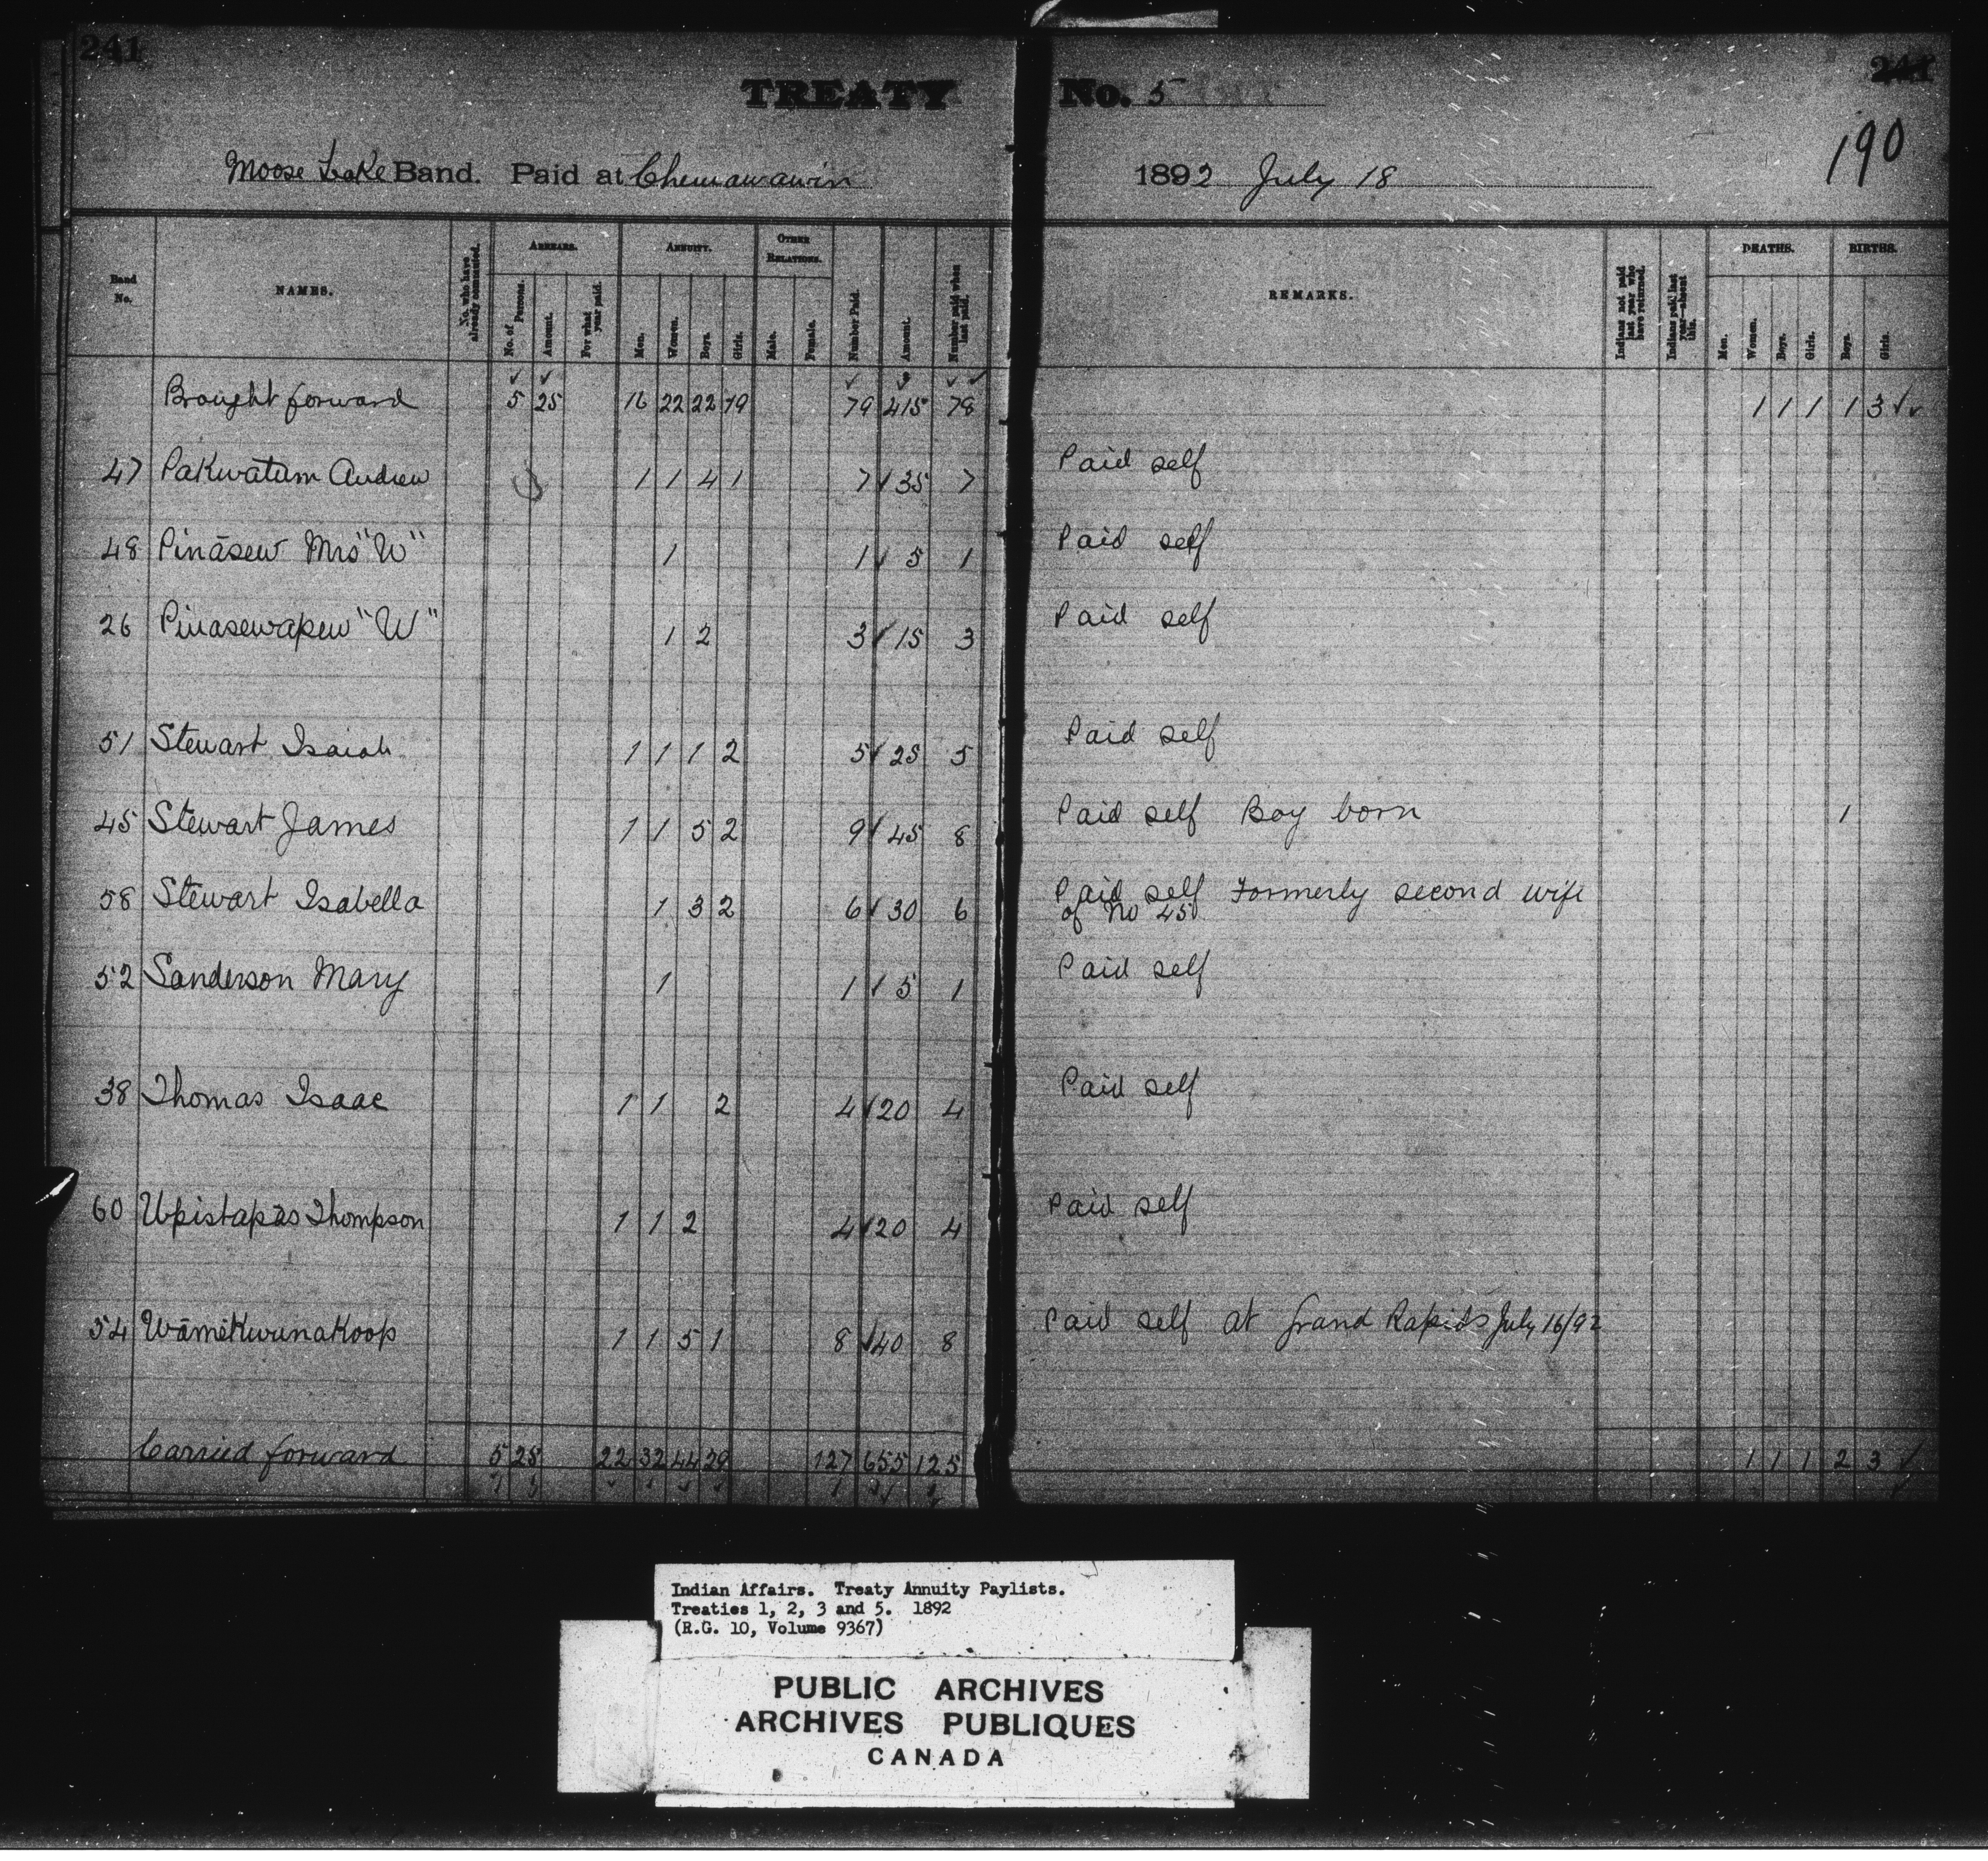 241
TREATY No. 5
241
190
Moose Lake Band. Paid at Chemawawin 1892 July 18
Band No. NAMES. No. who have already commuted. ARREARS. No. of Persons. Amount. For what year paid. ANNUITY. Men. Women. Boys. Girls. OTHER RELATIONS. Male. Female. Number Paid. Amount. Number paid when last paid. REMARKS. Indians not paid last year who have returned. Indians paid last year—absent this. DEATHS. Men. Women. Boys. Girls. BIRTHS. Boys. Girls.
Brought forward 5 25 16 22 22 19 79 415 78 1 1 1 1 3
47 Pakwatum Andrew 1 1 4 1 7 35 7 Paid self
48 Pināsew Mrs "W" 1 1 5 1 Paid self
26 Pinasewapew "W" 1 2 3 15 3 Paid self
51 Stewart Isaiah 1 1 1 2 5 25 5 Paid self
45 Stewart James 1 1 5 2 9 45 8 Paid self Boy born 1
58 Stewart Isabella 1 3 2 6 30 6 Paid self Formerly second wife
of No 45
52 Sanderson Mary 1 1 5 1 Paid self
38 Thomas Isaac 1 1 2 4 20 4 Paid self
60 Upistapās Thompson 1 1 2 4 20 4 Paid self
54 Wāmēkwunakoop 1 1 5 1 8 40 8 Paid self at Grand Rapids July 16/92
Carried forward 5 25 22 32 44 29 127 655 125 1 1 1 2 3
Indian Affairs. Treaty Annuity Paylists.
Treaties 1, 2, 3 and 5. 1892
(R.G. 10, Volume 9367)
PUBLIC ARCHIVES
ARCHIVES PUBLIQUES
CANADA